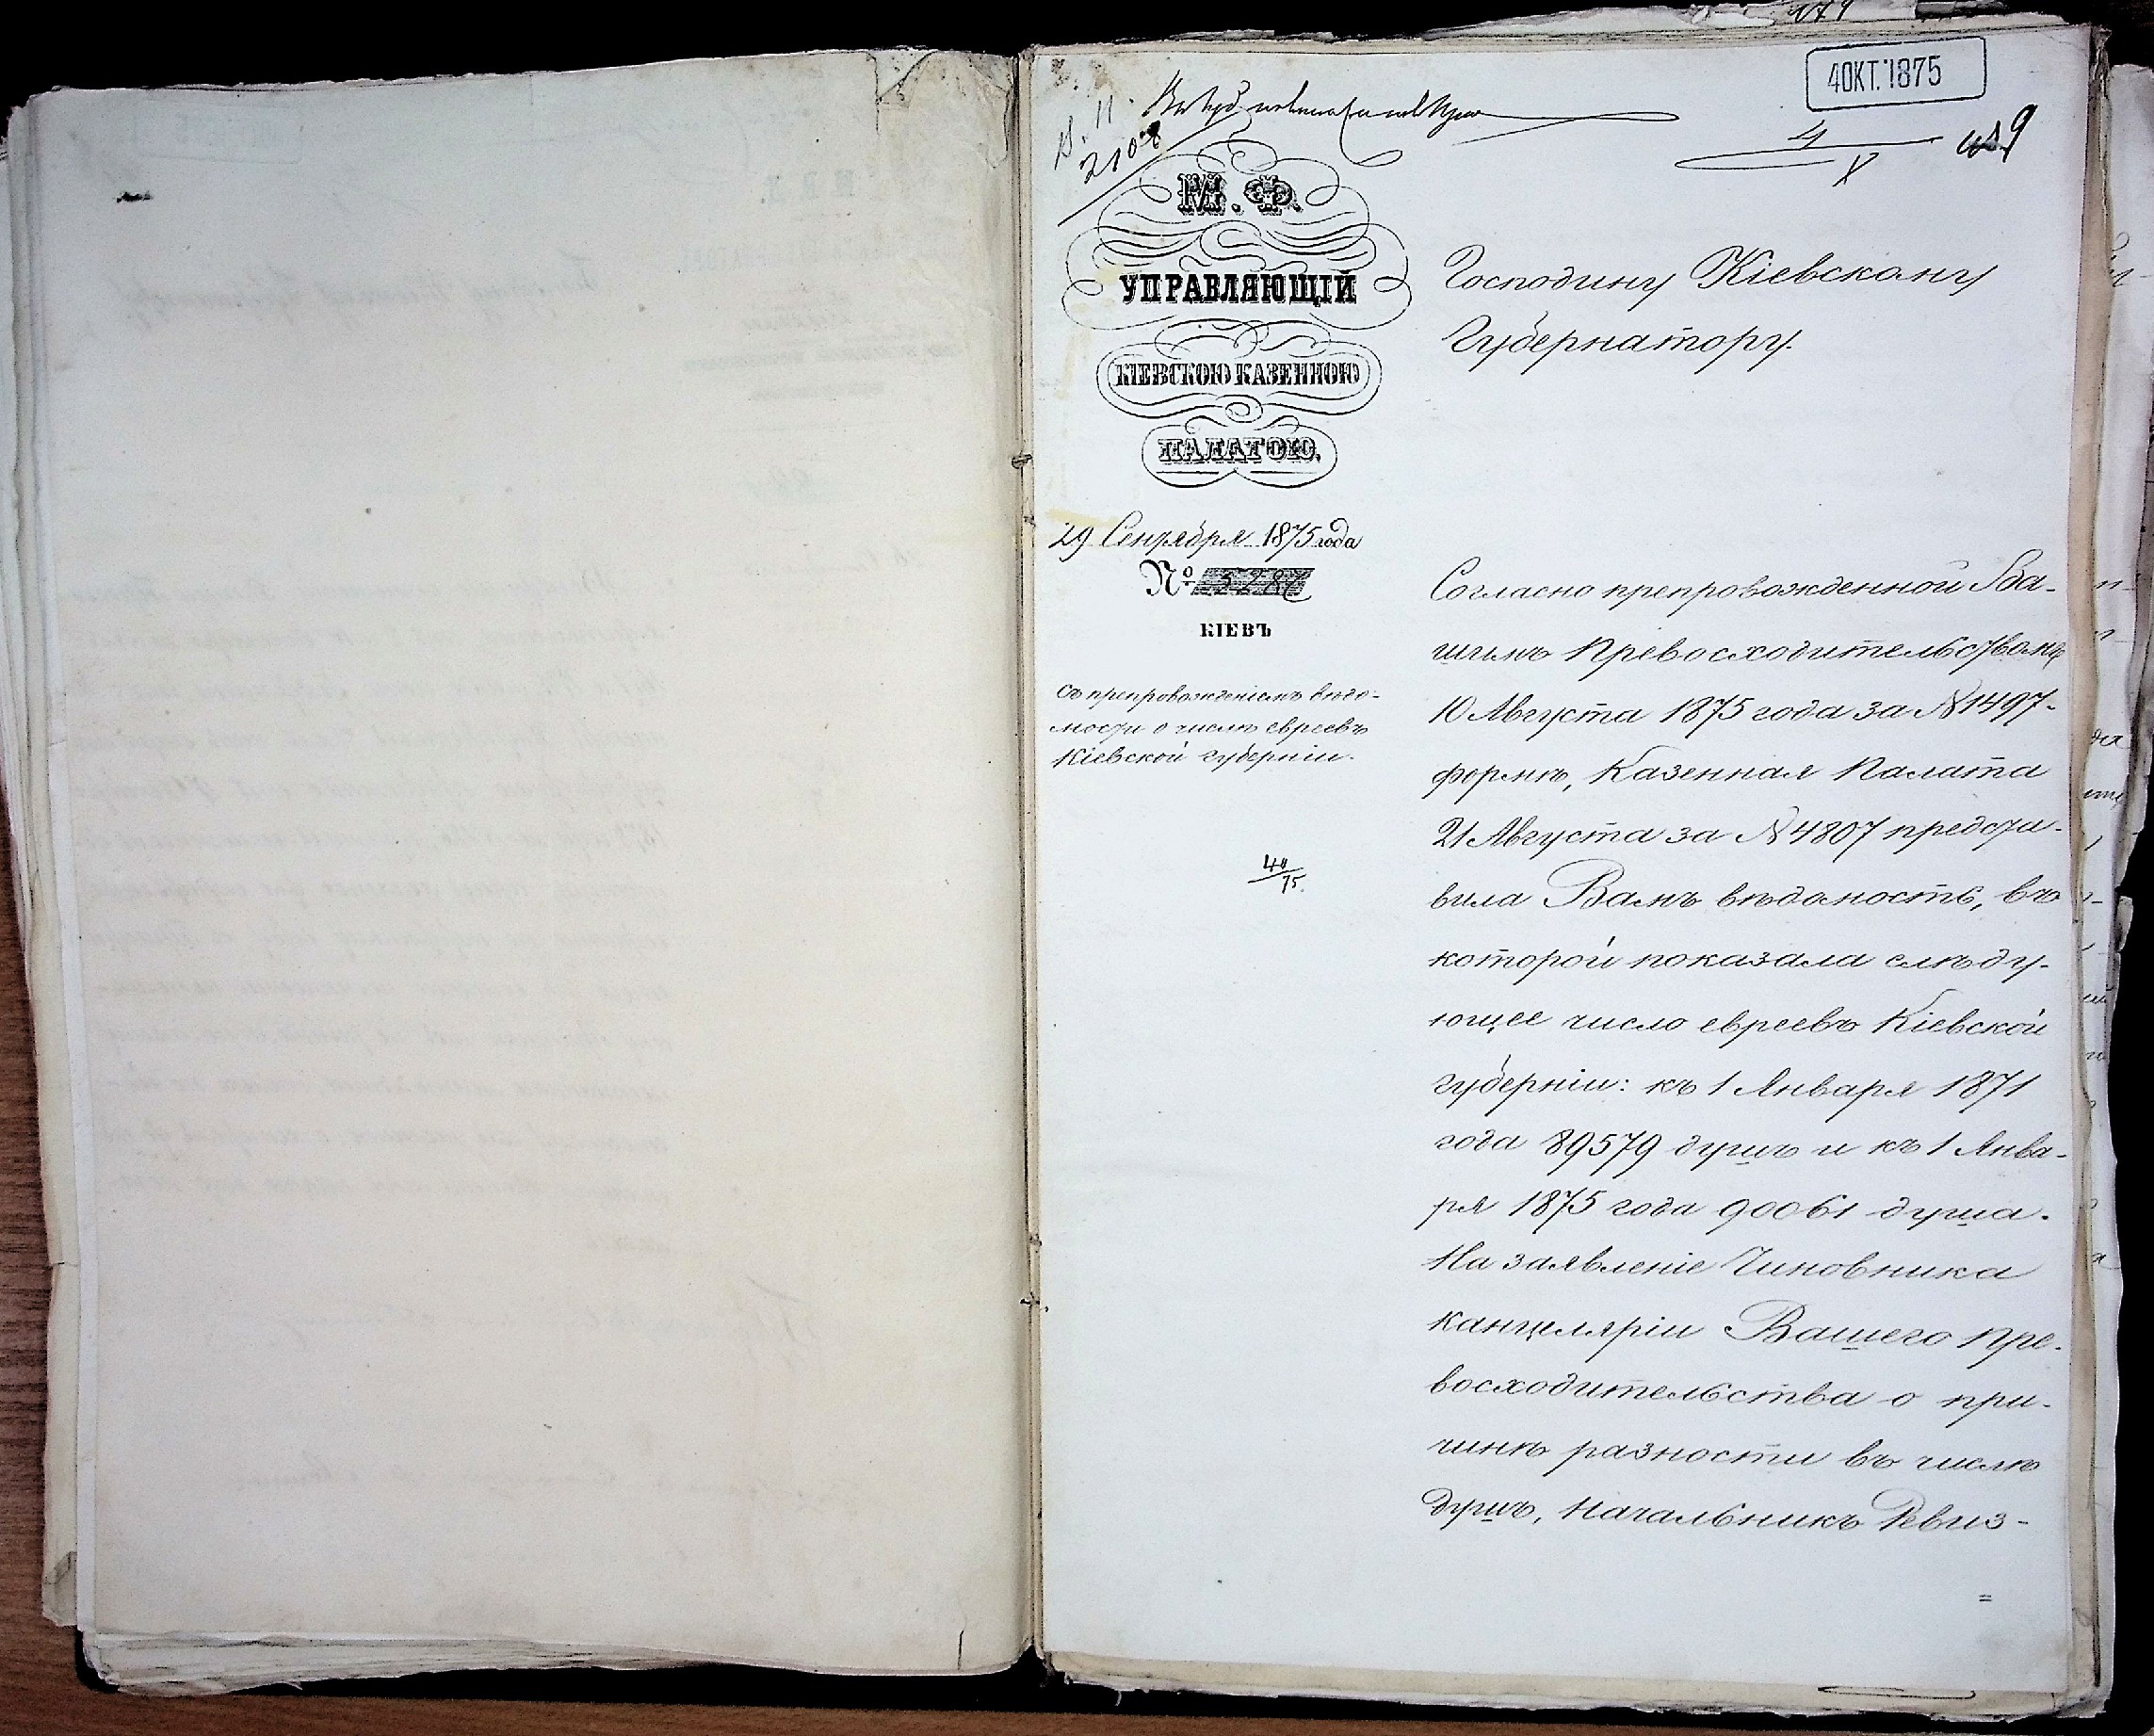 4 ОКТ. 1875
4
X
9
М. Ф.
УПРАВЛЯЮЩІЙ
КІЕВСКОЮ КАЗЕННОЮ
ПАЛАТОЮ.
29 Сентября 1875 года
№ 5282
КІЕВЪ
Съ препровожденіемъ вѣдо-
мости о числѣ евреевъ
Кіевской губерніи.
40/75.
Господину Кіевскому
Губернатору.
Согласно препровожденной Ва-
шимъ Превосходительствомъ
10 Августа 1875 года за № 1497-
формѣ, Казенная Палата
21 Августа за № 4807 предста-
вила Вамъ вѣдомость, въ
которой показала слѣду-
ющее число евреевъ Кіевской
губерніи: къ 1 Января 1871
года 89579 душъ и къ 1 Янва-
ря 1875 года 90061 душа.
На заявленіе Чиновника
канцеляріи Вашего Пре-
восходительства о при-
чинѣ разности въ числѣ
душъ, Начальникъ Ревиз-